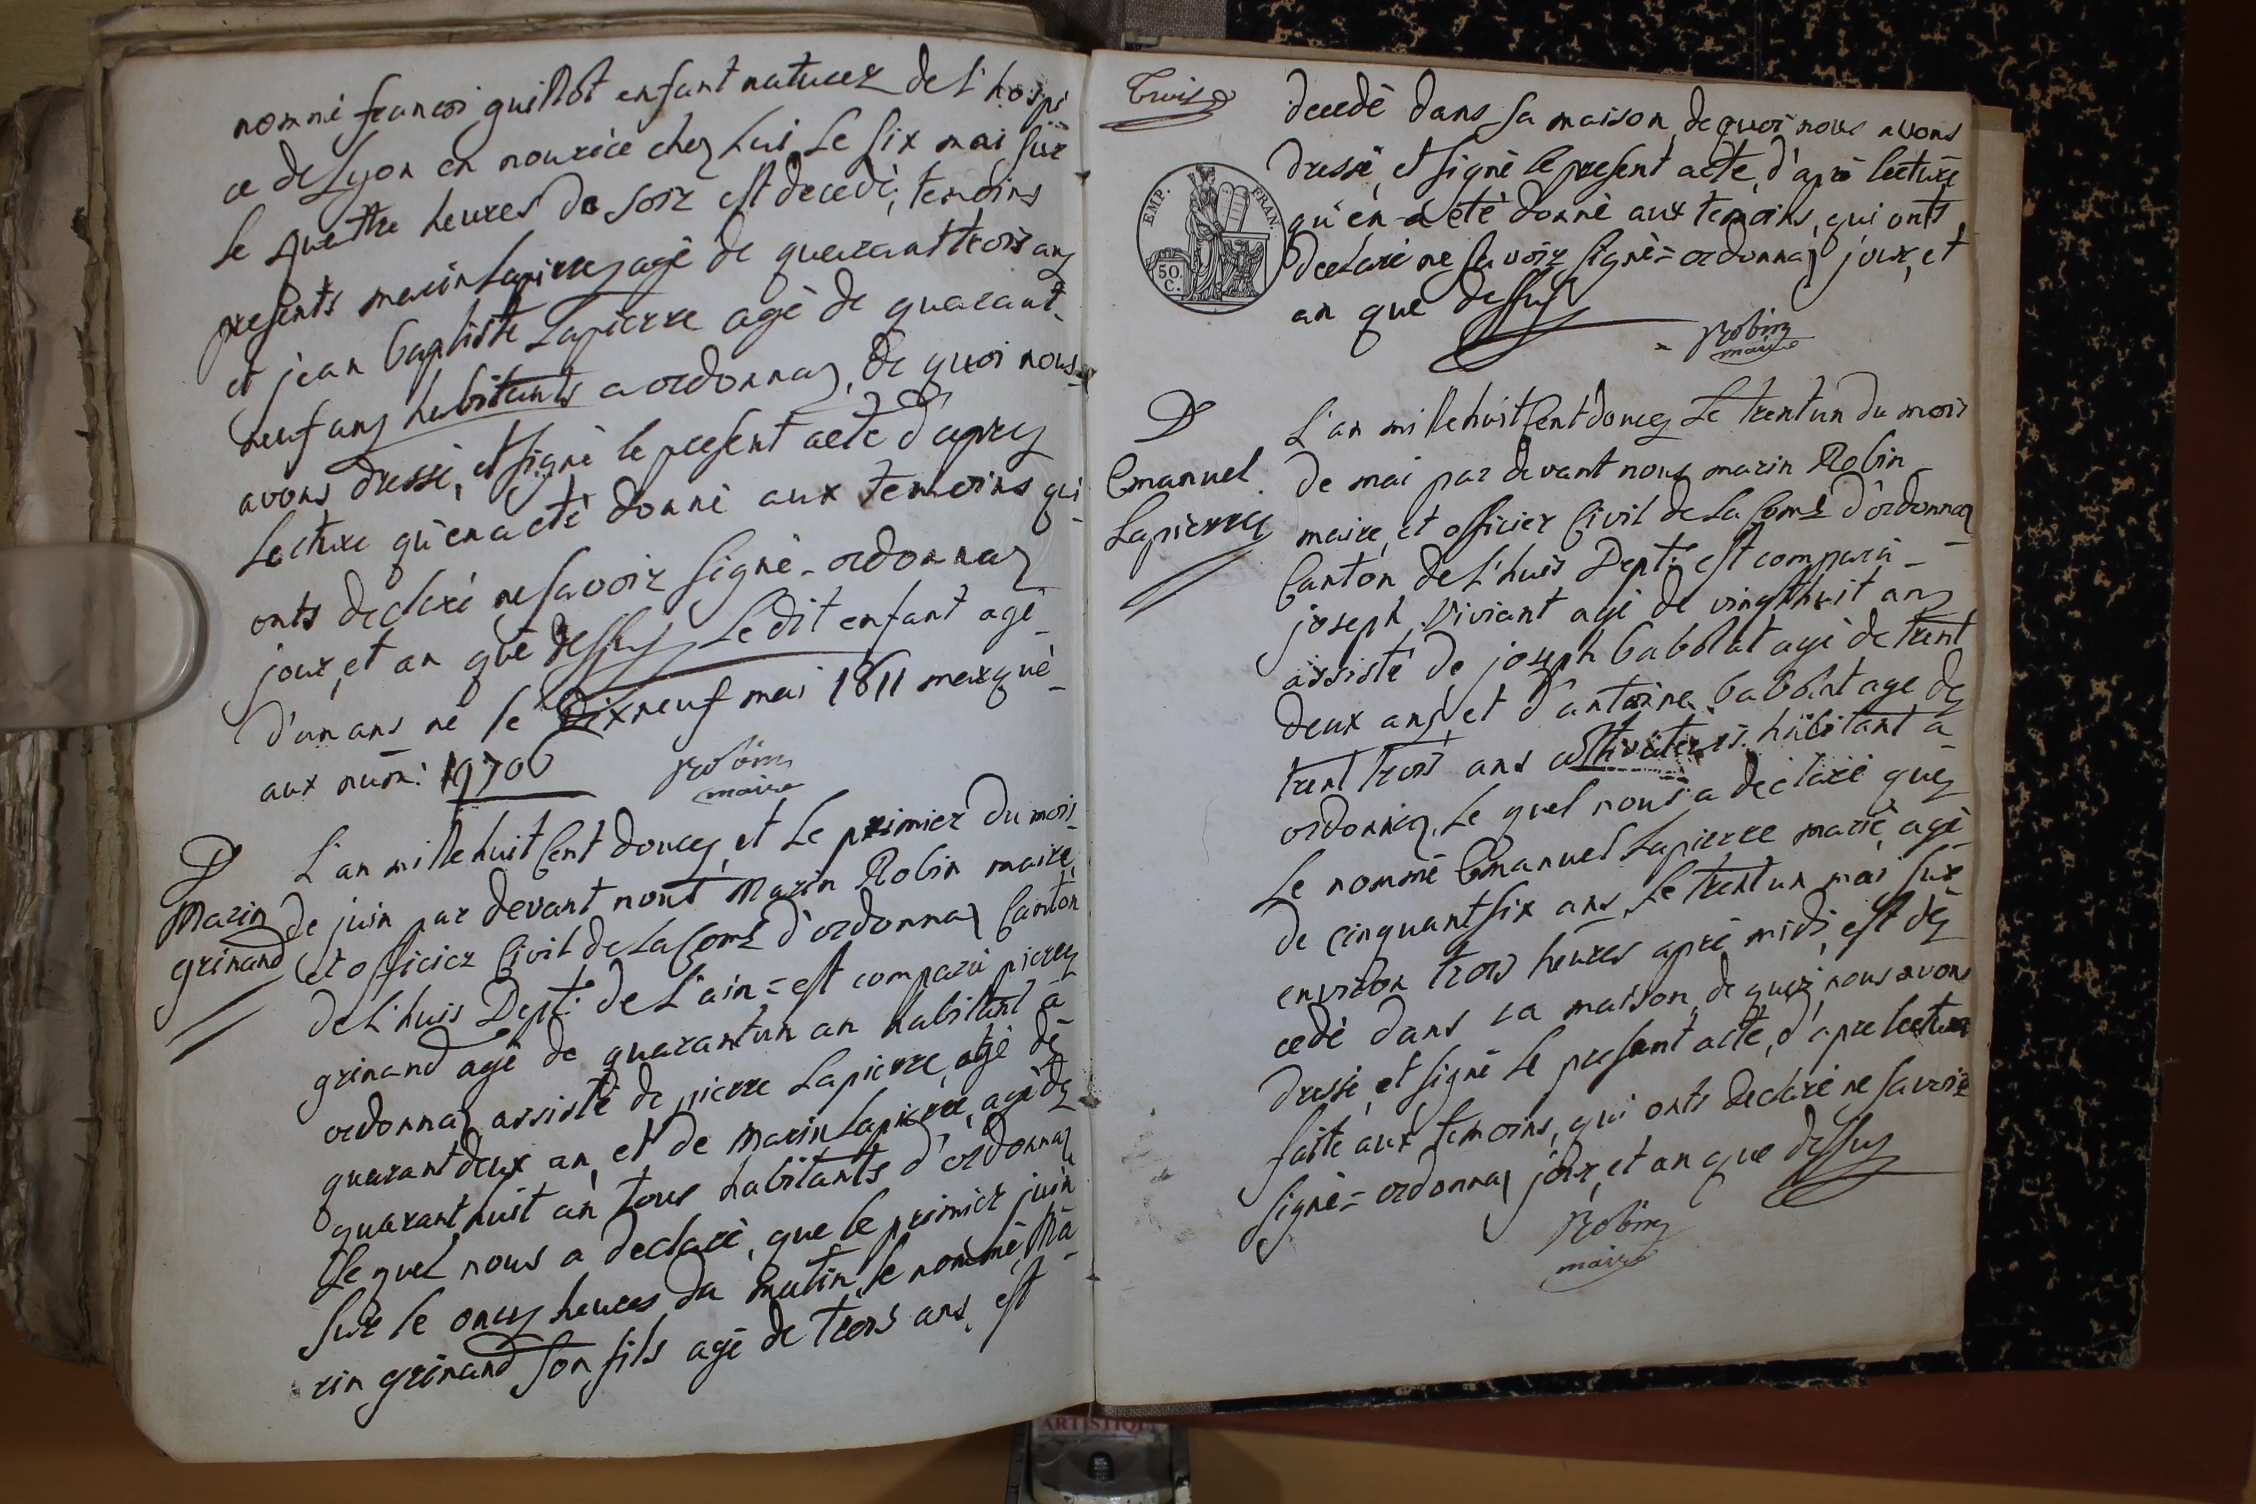 nommé francoi guillot enfant naturez de l'hospi
ce de Lyon en nourice chez Lui Le six mai sur
le quattre heures de soir est decedé, temoins
presents marin Lapierre agé de quarant trois ans
et jean baptiste Lapierre agé de quarant-
neuf ans habitants a ordonnaz, de quoi nous
avons dressé, et signé le present acte d'aprez
Lecture qu'en a eté donné aux temoins qui
onts declaré ne savoir signé - ordonnaz
jour, et an que dessus Le dit enfant agé
d'un ans né le dix neuf mai 1811 marqué
aux num: 19706
Robin
maire
D
Marin
grinand
L'an mille huit Cent doucez, et Le primier du mois
de juin par devant nout Marin Robin maire,
et officier Civil de La Com.e d'ordonnaz Canton
de L'huis Dept: de L'ain = est comparu pierre
grinand agé de quarantun an habitant a
ordonnaz assisté de pierre Lapierre, agé de
quarant deux an, et de marin Lapierre, agé de
quarant huit an tous habitants d'ordonnaz
Le quel nous a declaré, que le primier juin
sur le oncez heures du matin, le nommé, Ma-
rin grinand son fils agé de trois ans, est
Trois
EMP. FRAN.
50.
C.
decedé dans sa maison de quoi nous avons
dressé, et signé le present acte, d'apré lecture
qu'en a eté donné aux temoins, qui onts
declaré ne savoir signé = ordonnaz jour, et
an que dessus
Robin
maire
D
Emanuel
Lapierre
L'an mille huit Cent doucez Le trentun du mois
de mai par devant nous marin Robin
maire, et officier Civil de La Com.e d'ordonnaz
Canton de L'huis Dept: est comparu -
joseph Viviant agé de vingt huit ans
assisté de joseph babolat agé de trent
deux ans, et d'antoine babolat age de
trent trois ans cultivateurs habitant a
ordonnaz, Le quel nous a declaré que
Le nommé Emanuel Lapierre marié, agé
de cinquant six ans, Le trentun mai sur
environ trois heures apré midi, est de
cedé dans sa maison, de quoi, nous avons
dressé, et signé Le present acte, d'apre lecture
faite aux temoins, qui onts declaré ne savoir
signé = ordonnaz jour, et an que dessus
Robin
maire
ARTISTIQUE